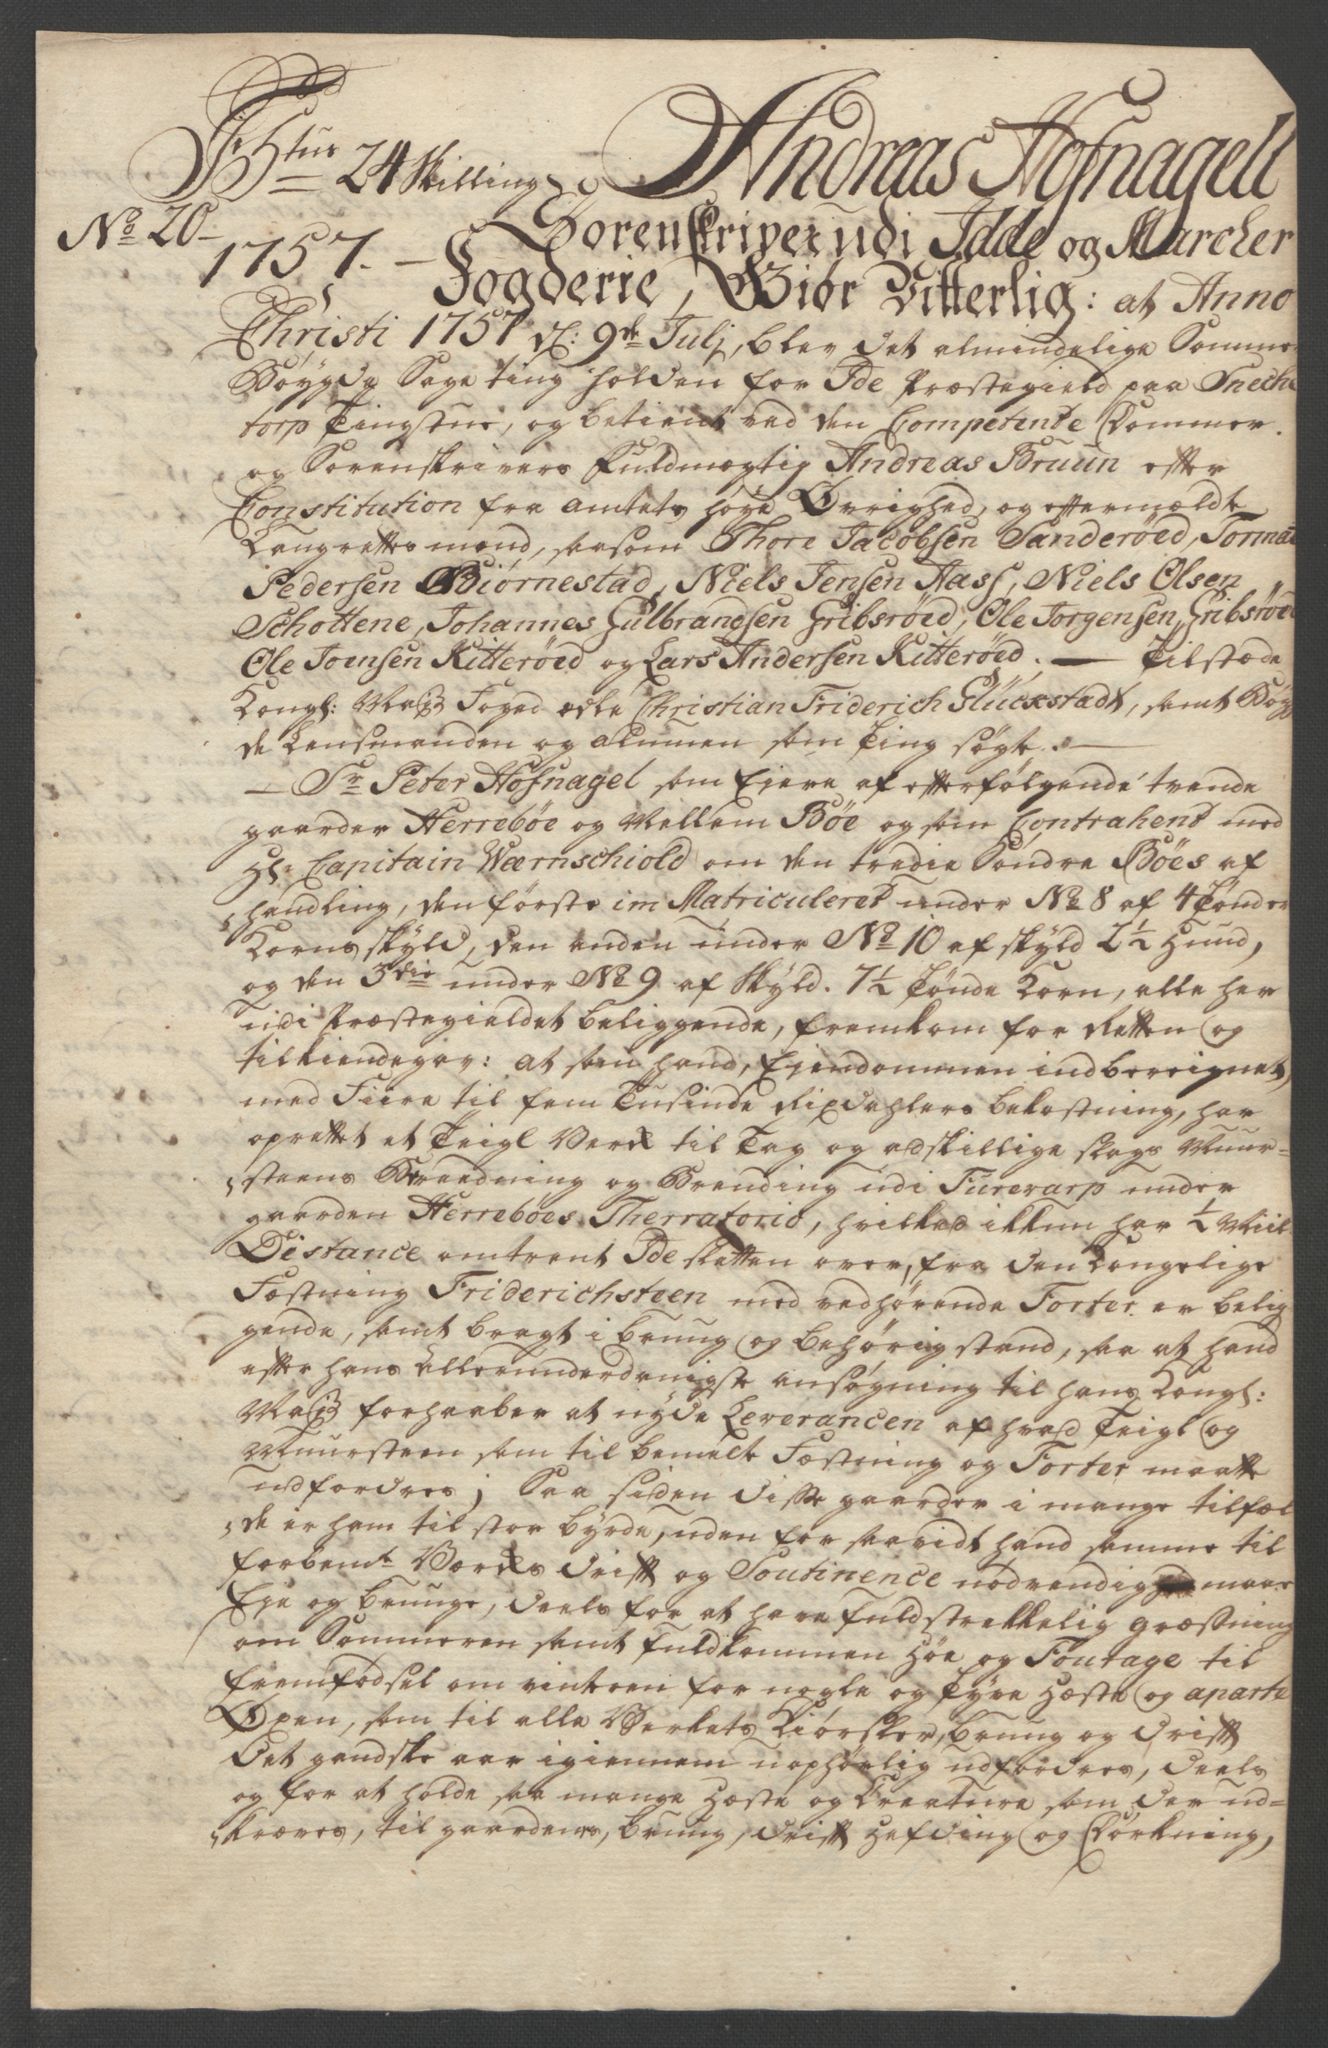 24 Skilling
No 20
1757.
Andreas Hofnagell
Sorenskriver udi Idde og Marcker
Fogderie, Giør Vitterlig: at Anno
Christi 1757 d: 9de Julj, blev det almindelige Sommer
Bøygde Sage Ting holden for Ide Præstegield paa Sneche
torp Tingstue, og betient ved den Competente Dommer
og Sorenskrivers Fuldmægtig Andreas Bruun efter
Constitution fra Amtets høye Øvrighed, og eftermældte
Laugrettes mænd, saasom Thore Jacobsen Sanderöed, Torma
Pedersen Biørnestad, Niels Jensen Aass, Niels Olsen
Schottene, Johannes Gulbrandsen Gribsröed, Ole Jorgensen Gribsröed
Ole Joensen Kitteröed og Lars Andersen Kitteröed. — Tilstæde
Kongl: Mays Foged ædle Christian Friderich Glückstadt, samt Bøyg
de Lensmanden og almuen som Ting søgte. —
— Sr Peter Hofnagel som Ejere af efterfølgende trende
gaarder Herreböe og Mellem Böe og som Contrahent med
Hr Capitain Wærnschiold om den tredie Söndre Böes af
handling, den første im Matriculeret under No 8 af 4 Tønder
Korns skyld, den anden under No 10 af skyld 2½ Huud,
og den 3die under No 9 af Skyld. 7½ Tønde Korn, alle her
udi Præstegieldet beliggende, fremkom for Retten og
tilkiendegav: at som hand, Ejendommen indbereignet,
med Fiire til fem Tusinde Rixdahlers bekostning, har
oprettet et Teigl Verk til Tag og adskillige slags Muur-
steens Bereedning og Brending udi Torevarp under
gaarden Herreböes Therratorio, hvilked ikkun har ½ Miil
Distance omtrent Ide sletten over, fra den Kongelige
Fæstning Friderichsteen med vedhørende Forter er belig
gende, samt bragt i brug og behørig stand, saa at hand
efter hans allerunderdanigste ansøgning til hans Kongl:
Mays forhaaber at nyde Leverancen af hvad Teigl og
Muursteen som til bemelte Fæstning og Forter maatte
udfordres; Saa siden disse gaarder i mange tilfæl
de er ham til stor byrde, uden for saavidt hand samme til
forbemte Værks drift og Soutinence nødvendig maae
Eje og bruuge, deels for at have fuldstrekkelig græsning
om Sommeren samt fuldkommen Høe og Foutage til
fremfødsel om vinteren for nogle og Tyve Hæste og aparte
Øxen, som til alle Verkets Kiørsler, brug og drift
det gandske aar igiennem uophørlig udfordres, deels
og for at holde saa mange Hæste og Creature som der ud-
kræves, til gaardenes, brug, drift Hæfding og Dørkning,